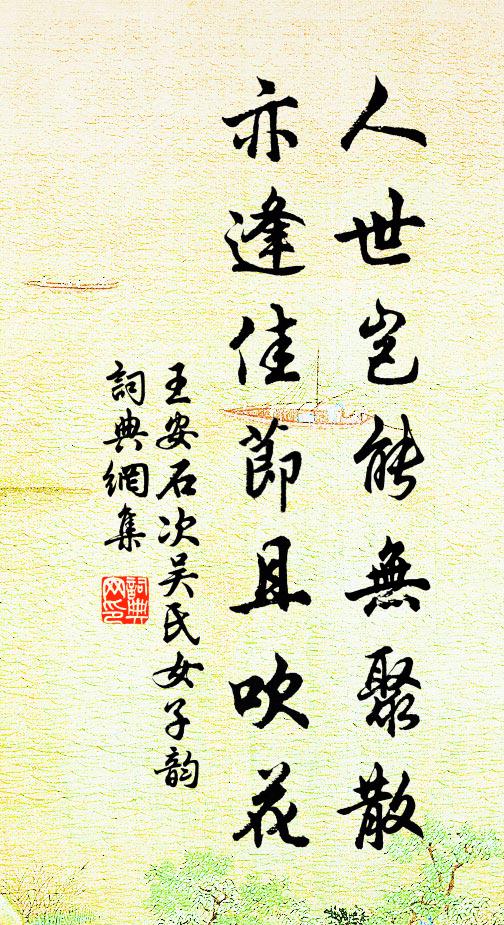 人世豈能無聚散
亦逢佳節且吹花
王安石次吳氏女子韵
詞典網集
詞典
网印